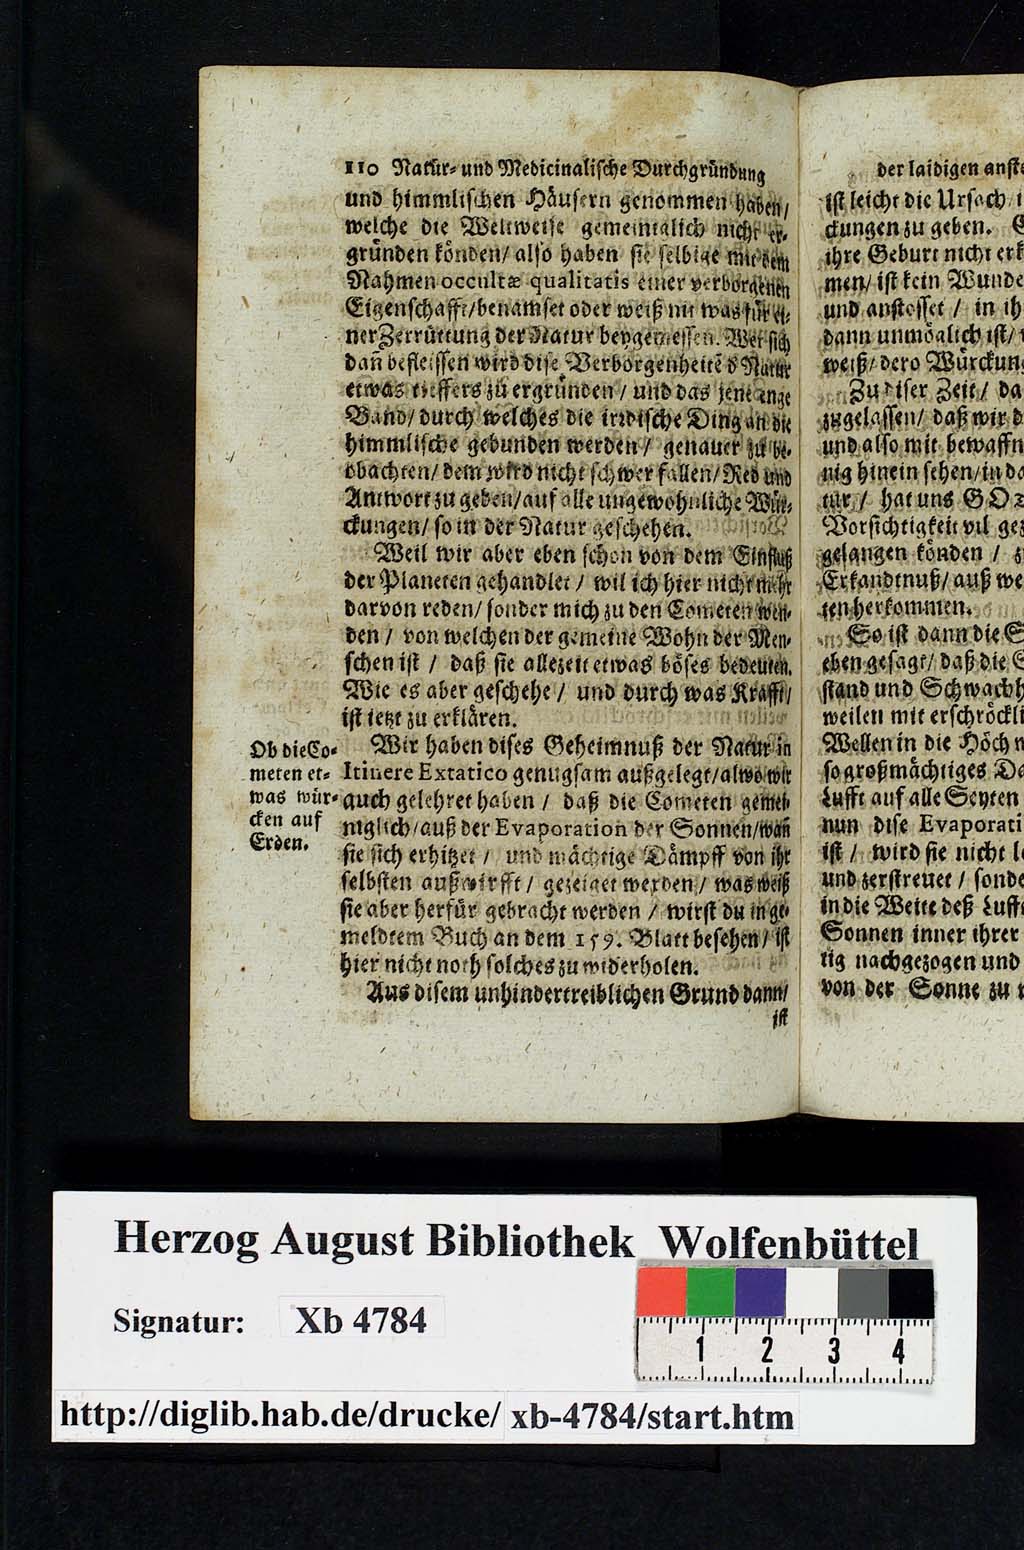 110 Natur- und Medicinalische Durchgründung
und himmlischen Häusern genommen haben/
welche die Weltweise gemeiniglich nicht er-
gründen könden/ also haben sie selbige mit dem
Nahmen occultæ qualitatis einer verborgenen
Eigenschafft/benamset oder weiß nit was für ei-
ner Zerrüttung der Natur beygemessen. Wer sich
dañ befleissen wird dise Verborgenheitẽ d' Natur
etwas tieffers zu ergründen / und das jene enge
Band/ durch welches die irrdische Ding an die
himmlische gebunden werden / genauer zu be-
obachten/ dem wird nicht schwer fallen/ Red und
Antwort zu geben/auf alle ungewohnliche Wür-
ckungen/ so in der Natur geschehen.
Weil wir aber eben schon von dem Einfluß
der Planeten gehandlet / wil ich hier nicht mehr
darvon reden/ sonder mich zu den Cometen wen-
den / von welchen der gemeine Wohn der Men-
schen ist / daß sie allezeit etwas böses bedeuten.
Wie es aber geschehe / und durch was Krafft/
ist ietzt zu erklären.
Ob die Co-
meten et-
was wür-
cken auf
Erden.
Wir haben dises Geheimnuß der Natur in
Itinere Extatico genugsam außgelegt/alwo wir
auch gelehret haben / daß die Cometen gemei-
niglich/auß der Evaporation der Sonnen/wañ
sie sich erhitzet / und mächtige Dämpff von ihr
selbsten außwirfft/ gezeiget werden/ was weiß
sie aber herfür gebracht werden / wirst du in ge-
meldtem Buch an dem 159. Blatt besehen/ ist
hier nicht noth solches zu widerholen.
Aus disem unhindertreiblichen Grund dann/
ist
der laidigen anste
ist leicht die Ursach/
ckungen zu geben.
ihre Geburt nicht erk
men/ ist kein Wunde
und anstosset / in ih
dann unmöglich ist/
weiß/ dero Würckung
Zu diser Zeit/ da
zugelassen/ daß wir d
und also mit bewaffn
nig hinein sehen/in da
tur / hat uns GOt
Vorsichtigkeit vil gez
gelangen könden / z
Erkandtnuß/ auß we
ten herkommen.
So ist dann die S
eben gesagt/ daß die S
stand und Schwachh
weilen mit erschröckli
Wellen in die Höch
so großmächtiges Da
Lufft auf alle Seyten
nun dise Evaporati
ist / wird sie nicht le
und zerstreuet / sonde
in die Weite deß Luft
Sonnen inner ihrer
tig nachgezogen und
von der Sonne zu
Herzog August Bibliothek Wolfenbüttel
Signatur: Xb 4784
1 2 3 4
http://diglib.hab.de/drucke/ xb-4784/start.htm